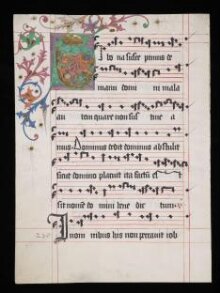 bona suscepimus de
manu domi ni mala
au tem quare non sus tine a
mus Dominus dedit dominus abstulit
sicut domino placuit ita factum est
sit nomen do mini bene dic tum
In omnibus his non peccavit iob